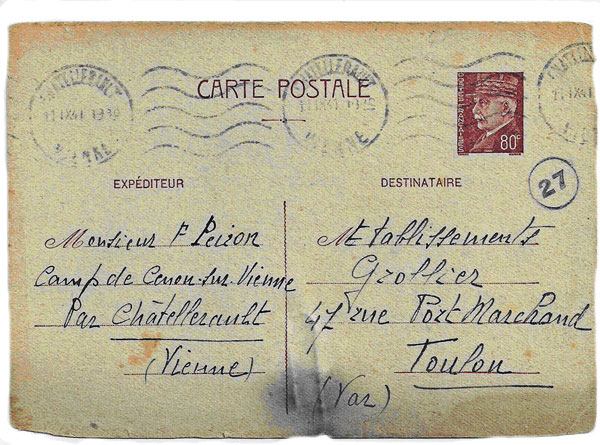 CHATELLERAULT
11 IX 41 1930
VIENNE
CHATELLERAULT
11 IX 41 1930
VIENNE
CARTE POSTALE
80c
27
EXPÉDITEUR
Monsieur F Peizon
Camp de Cenon-sur-Vienne
Par Châtellerault
(Vienne)
DESTINATAIRE
Etablissements
Grollier
47 rue Port Marchand
Toulon
(Var)